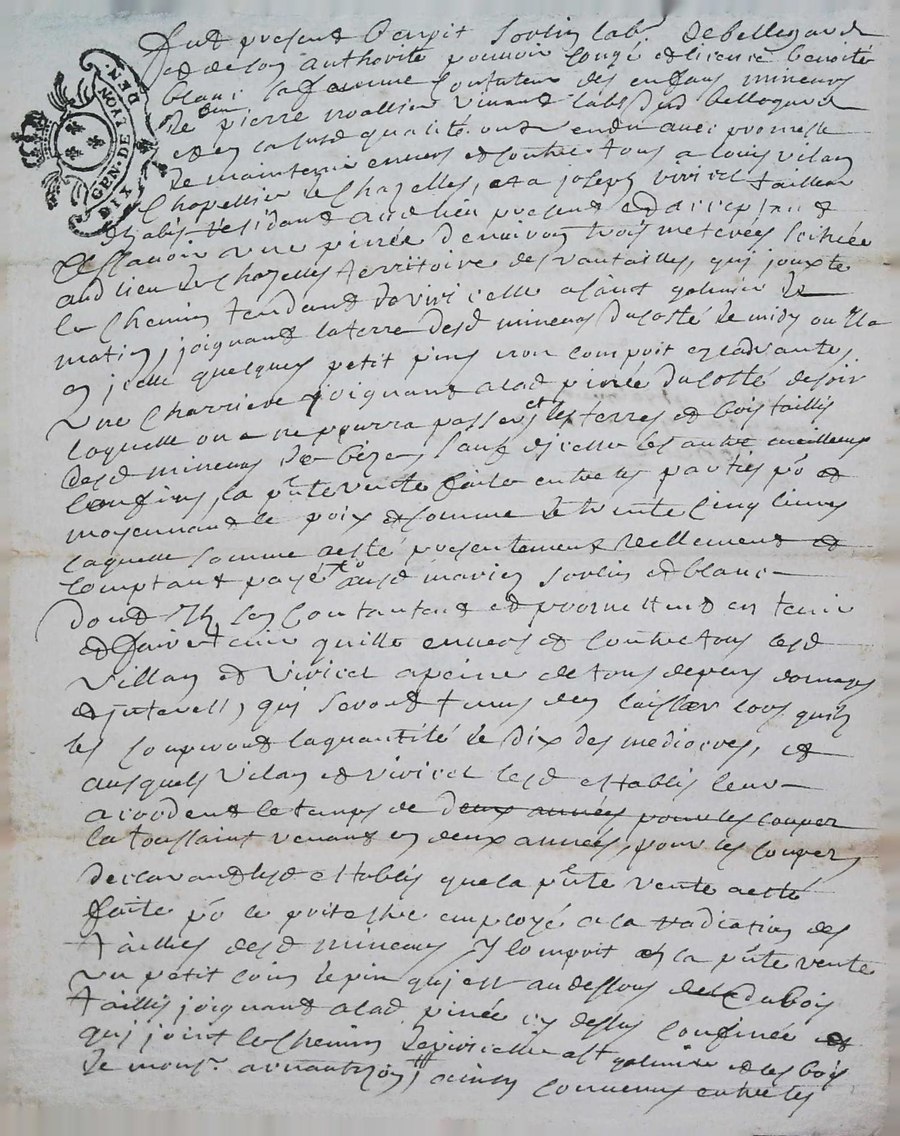 GEN. DE LYON
DIX DEN.
fut present benoit Sovlin lab.r de bellegarde
et de son authorité pouvoir congé et licence benoite
blanc sa femme des enfans mineurs
de pierre vivant lab.r dud bellegarde
et en lad qualité ont vendu avec promesse
de maintenir envers et contre tous a louis vilan
Chapellier de Chazelles, et a joseph viricel tailleur
d'habits residant aud lieu present et acceptant
Scavoir une pinée denviron trois meterées scituée
aud lieu de Chazelles territoire des vantailles, qui jouxte
le Chemin tendant de viricelle a saint galmier de
matin, joignant la terre desd mineurs du costé de midy ou il a
en icelle quelques petit pins non compris
une Charriere joignant a lad pinée du costé de soir
laquelle on ne pourra passer et les terres et bois taillis
desd mineurs de bize, sauf d'icelle les autre meilleurs
confins, la pnte vente faite entre les parties po et
moyennant le prix et somme de trente cinq livres
laquelle somme a esté presentement reellement et
comptant payé aud mariés Sovlin et blanc
dont ils se contantent et promettent en tenir
et faire tenir quitte envers et contre tous lesd
Villan et Viricel a peine de tous depens domages
et interest, qui seront tenus den laisser lors quils
les couperont la quantité de dix des mediocres, et
ausquels vilan et viricel lesd establis leur
acordent le temps de deux années pour les couper
la toussaint venant en deux années, pour les couper,
desclarant lesd establis que la pnte vente a esté
faite po le prix estre employé a la des
tailles desd mineurs y compris en la pnte vente
un petit coin de pin qui est au dessous du bois
taillis joignant a lad pinée cy dessus confinée et
qui joint le Chemin de viricelle a st galmier et les bois
de mons.r ainsy convenus entre les